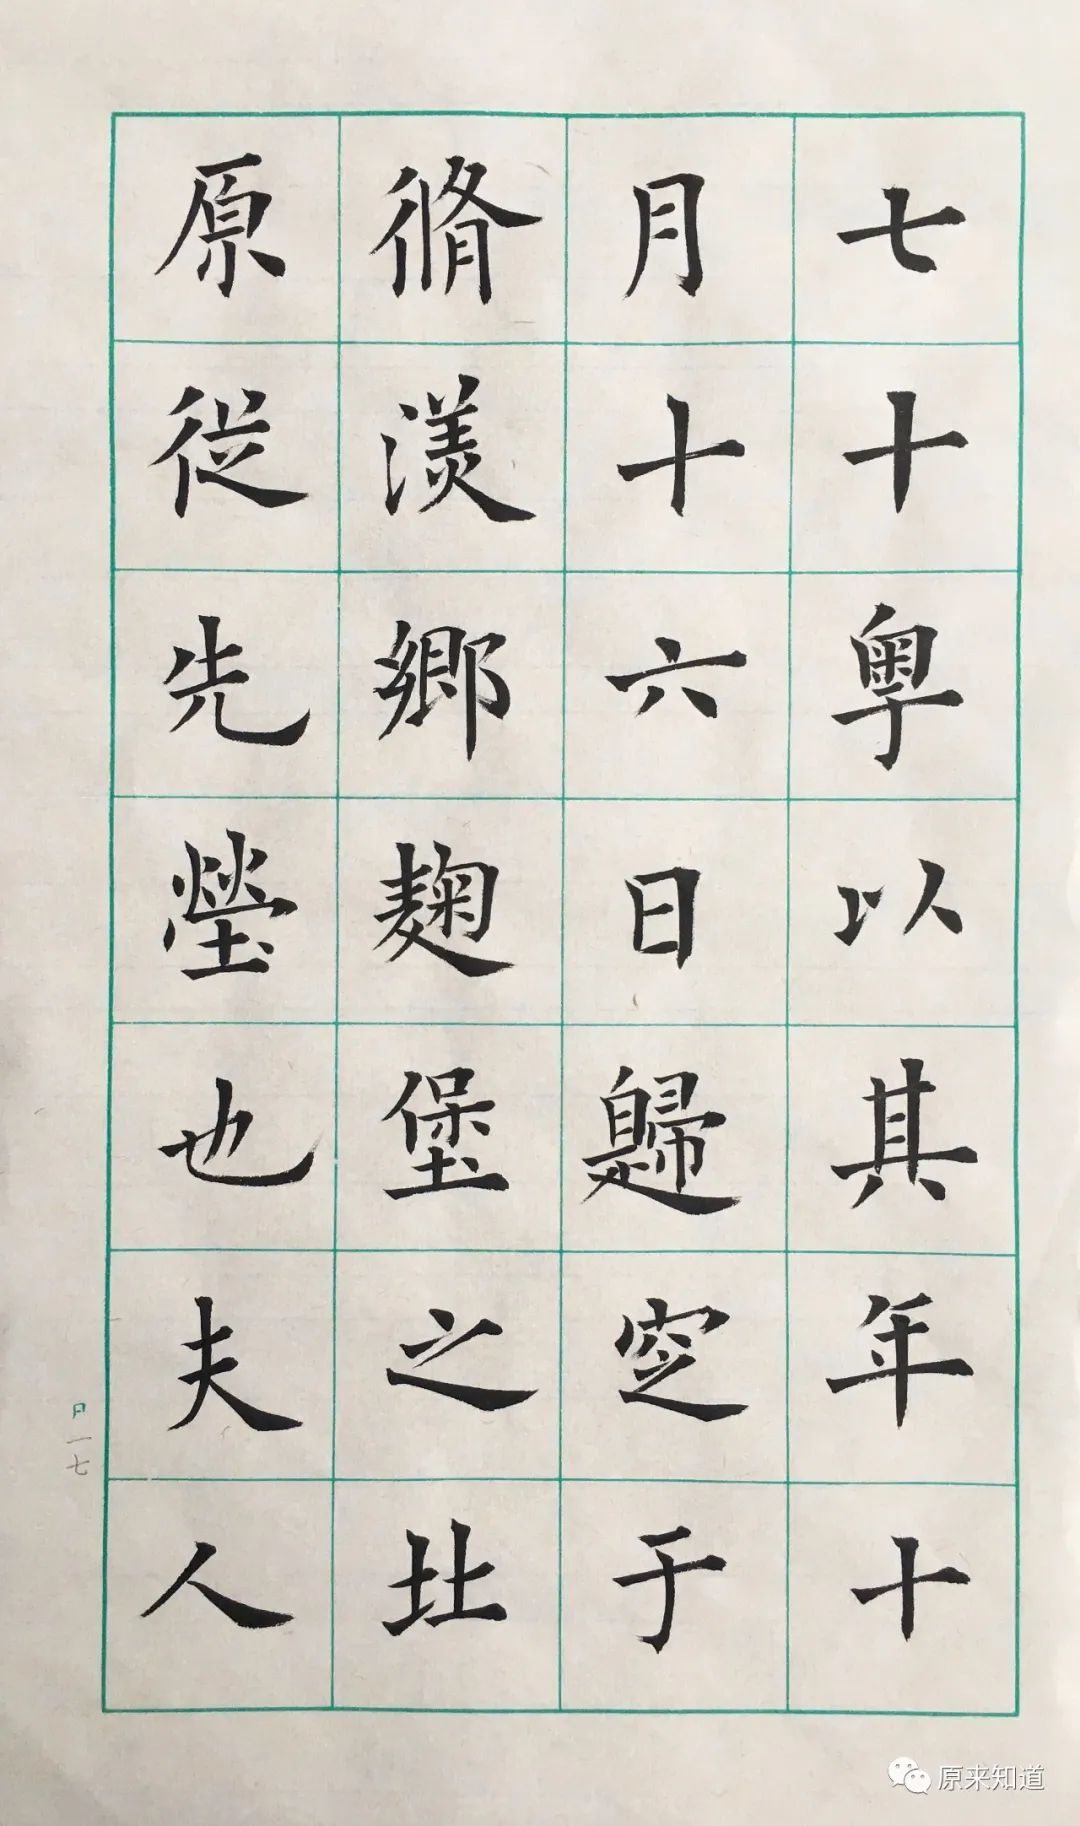 七十粤以其年十
月十六日歸窆于
脩渼鄉麹堡之北
原從先塋也夫人
P一七
原来知道